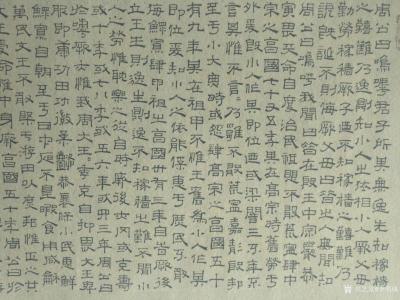 周公曰嗚呼君子所其無逸先知稼穡
之艱難乃逸則知小人之依相小人厥父母
勤勞稼穡厥子乃不知稼穡之艱難乃逸乃
諺既誕否則侮厥父母曰昔之人無聞知
周公曰嗚呼我聞曰昔在殷王中宗嚴恭
寅畏天命自度治民祗懼不敢荒寧肆中
宗之享國七十有五年其在高宗時舊勞于
外爰暨小人作其即位乃或亮陰三年不
言其惟不言言乃雍不敢荒寧嘉靖殷邦
至于小大無時或怨肆高宗之享國五十
有九年其在祖甲不義惟王舊為小人作其
即位爰知小人之依能保惠于庶民不敢
侮鰥寡肆祖甲之享國卅有三年自時厥後
立王生則逸生則逸不知稼穡之艱難不聞小
人之勞惟耽樂之從自時厥後亦罔或克壽
或十年或七八年或五六年或四三年周公曰
嗚呼厥亦惟我周太王王季克自抑畏文王卑
服即康功田功徽柔懿恭懷保小民惠鮮
鰥寡自朝至于日中昃不遑暇食用咸和
萬民文王不敢盤于遊田以庶邦惟正之供
文王受命惟中身厥享國五十年周公曰